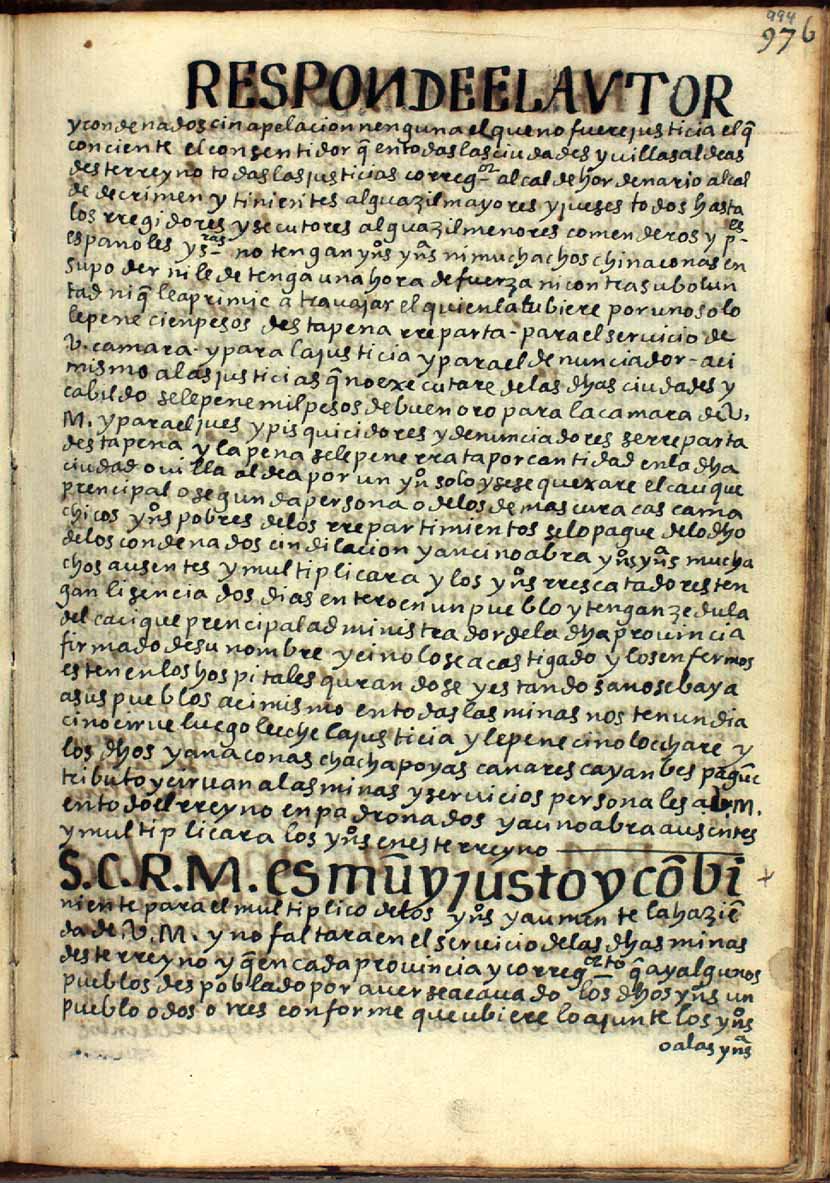 994
976
RESPONDE EL AVTOR
y condenados cin apelacion nenguna el que no fuere justicia el q̄
conciente el consentidor q̄ en todas las ciudades y uillas aldeas
deste rreyno todas las justicias correg.or alcalde hordenario alcal
de de crimen y tinientes alguazil mayores y jueses todos hasta
los rregidores y secutores alguazil menores comenderos y p.es
españoles y s.ras no tengan yn̊s yn̄as ni muchachos chinaconas en
su poder ni le detenga una hora de fuerza ni contra su bolun
tad ni q̄ le aprimie a trauajar el quien la tubiere por uno solo
le pene cien pesos desta pena rreparta - para el seruicio de
V. camara - y para la justicia y para el denunciador - aci
mismo a las justicias q̄ no executare de las dhas ciudades y
cabildo se le pene mil pesos de buen oro para la camara de V.
M. y para el jues y pisquicidores y denunciadores se rreparta
desta pena y la pena se le pene rrata por cantidad en la dha
ciudad o uilla aldea por un yn̊ solo y se se quexare el cacique
prencipal o segunda persona o de los demas curacas cama
chicos yn̊s pobres de los rrepartimientos se lo pague de lo dho
de los condenados cin dilacion y anci no abra yn̊s yn̄as mucha
chos ausentes y multiplicara y los yn̊s rrescatadores ten
gan lisencia dos dias entero en un pueblo y tengan zedula
del cacique prencipal administrador de la dha prouincia
firmado de su nombre y ci no lo sea castigado y los enfermos
esten en los hospitales qurandose y estando sano se baya
a sus pueblos aci mismo en todas las minas nos ten un dia
ci no cirue luego le eche la justicia y le pene ci no lo echare y
los dhos yanaconas chachapoyas cañares cayanbes pagūe
tributo y ciruan a las minas y seruicios personales a V.M.
en todo el rreyno enpadronados y aci no abra ausentes
y multiplicara los yn̊s en este rreyno
S.C.R.M. es mūy justo y cōbi
niente para el multiplico de los yn̊s y aumente la haziē
da de V. M. y no faltara en el seruicio de las dhas minas
deste rreyno y q̄ en cada prouincia y correg.to q̄ ay algunos
pueblos despoblado por auerse acauado los dhos yn̊s un
pueblo o dos o tres conforme que ubiere lo ajunte los yn̊s
o a las yn̄as